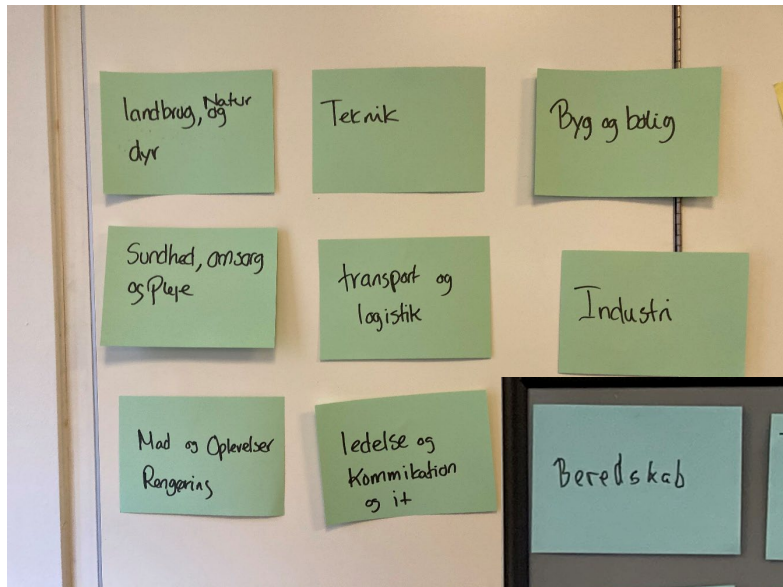 landbrug, Natur og
dyr
Teknik
Byg og bolig
Sundhed, omsorg
og Pleje
transport og
logistik
Industri
Mad og Oplevelser
Rengøring
ledelse og
Kommikation
og it
Beredskab